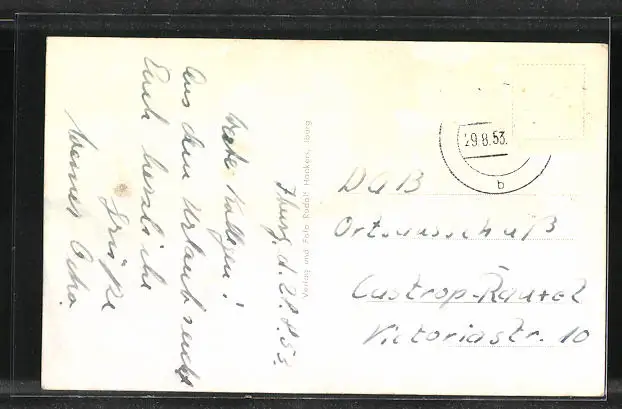 Iburg, d. 28.8.53.
Liebe Kollegen!
Aus dem Urlaub sendet
Euch herzliche
Grüße
Werner
Verlag und Foto Rudolf Honkers, Iburg
29.8.53.
b
DGB
Ortsausschuß
Castrop-Rauxel
Victoriastr. 10